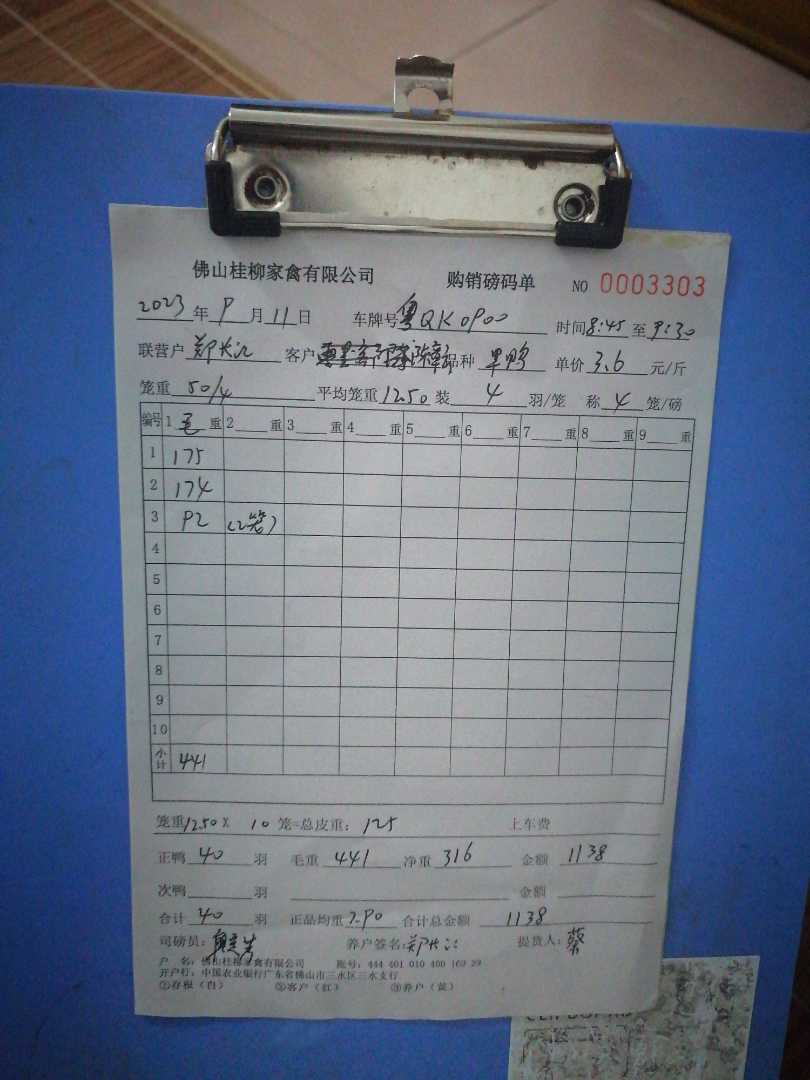 佛山桂柳家禽有限公司 购销磅码单 NO 0003303
2023年9月11日 车牌号粤QK0900 时间8:45至9:30
联营户 郑长江 客户 品种 单价3.6元/斤
笼重 50/4 平均笼重12.50装 4 羽/笼 称 4 笼/磅
编号 1 毛 重 2 重 3 重 4 重 5 重 6 重 7 重 8 重 9 重
1 175
2 174
3 92 (2笼)
4
5
6
7
8
9
10
小计 441
笼重12.50 X 10 笼=总皮重: 125 上车费
正鸭 40 羽 毛重 441 净重 316 金额 1138
次鸭 羽 金额
合计 40 羽 正品均重 7.90 合计总金额 1138
司磅员: 养户签名:郑长江 提货人:蔡
户 名:佛山桂柳家禽有限公司 账号: 444 401 010 400 169 29
开户行: 中国农业银行广东省佛山市三水区三水支行
①存根(白) ②客户(红) ③养户(黄)